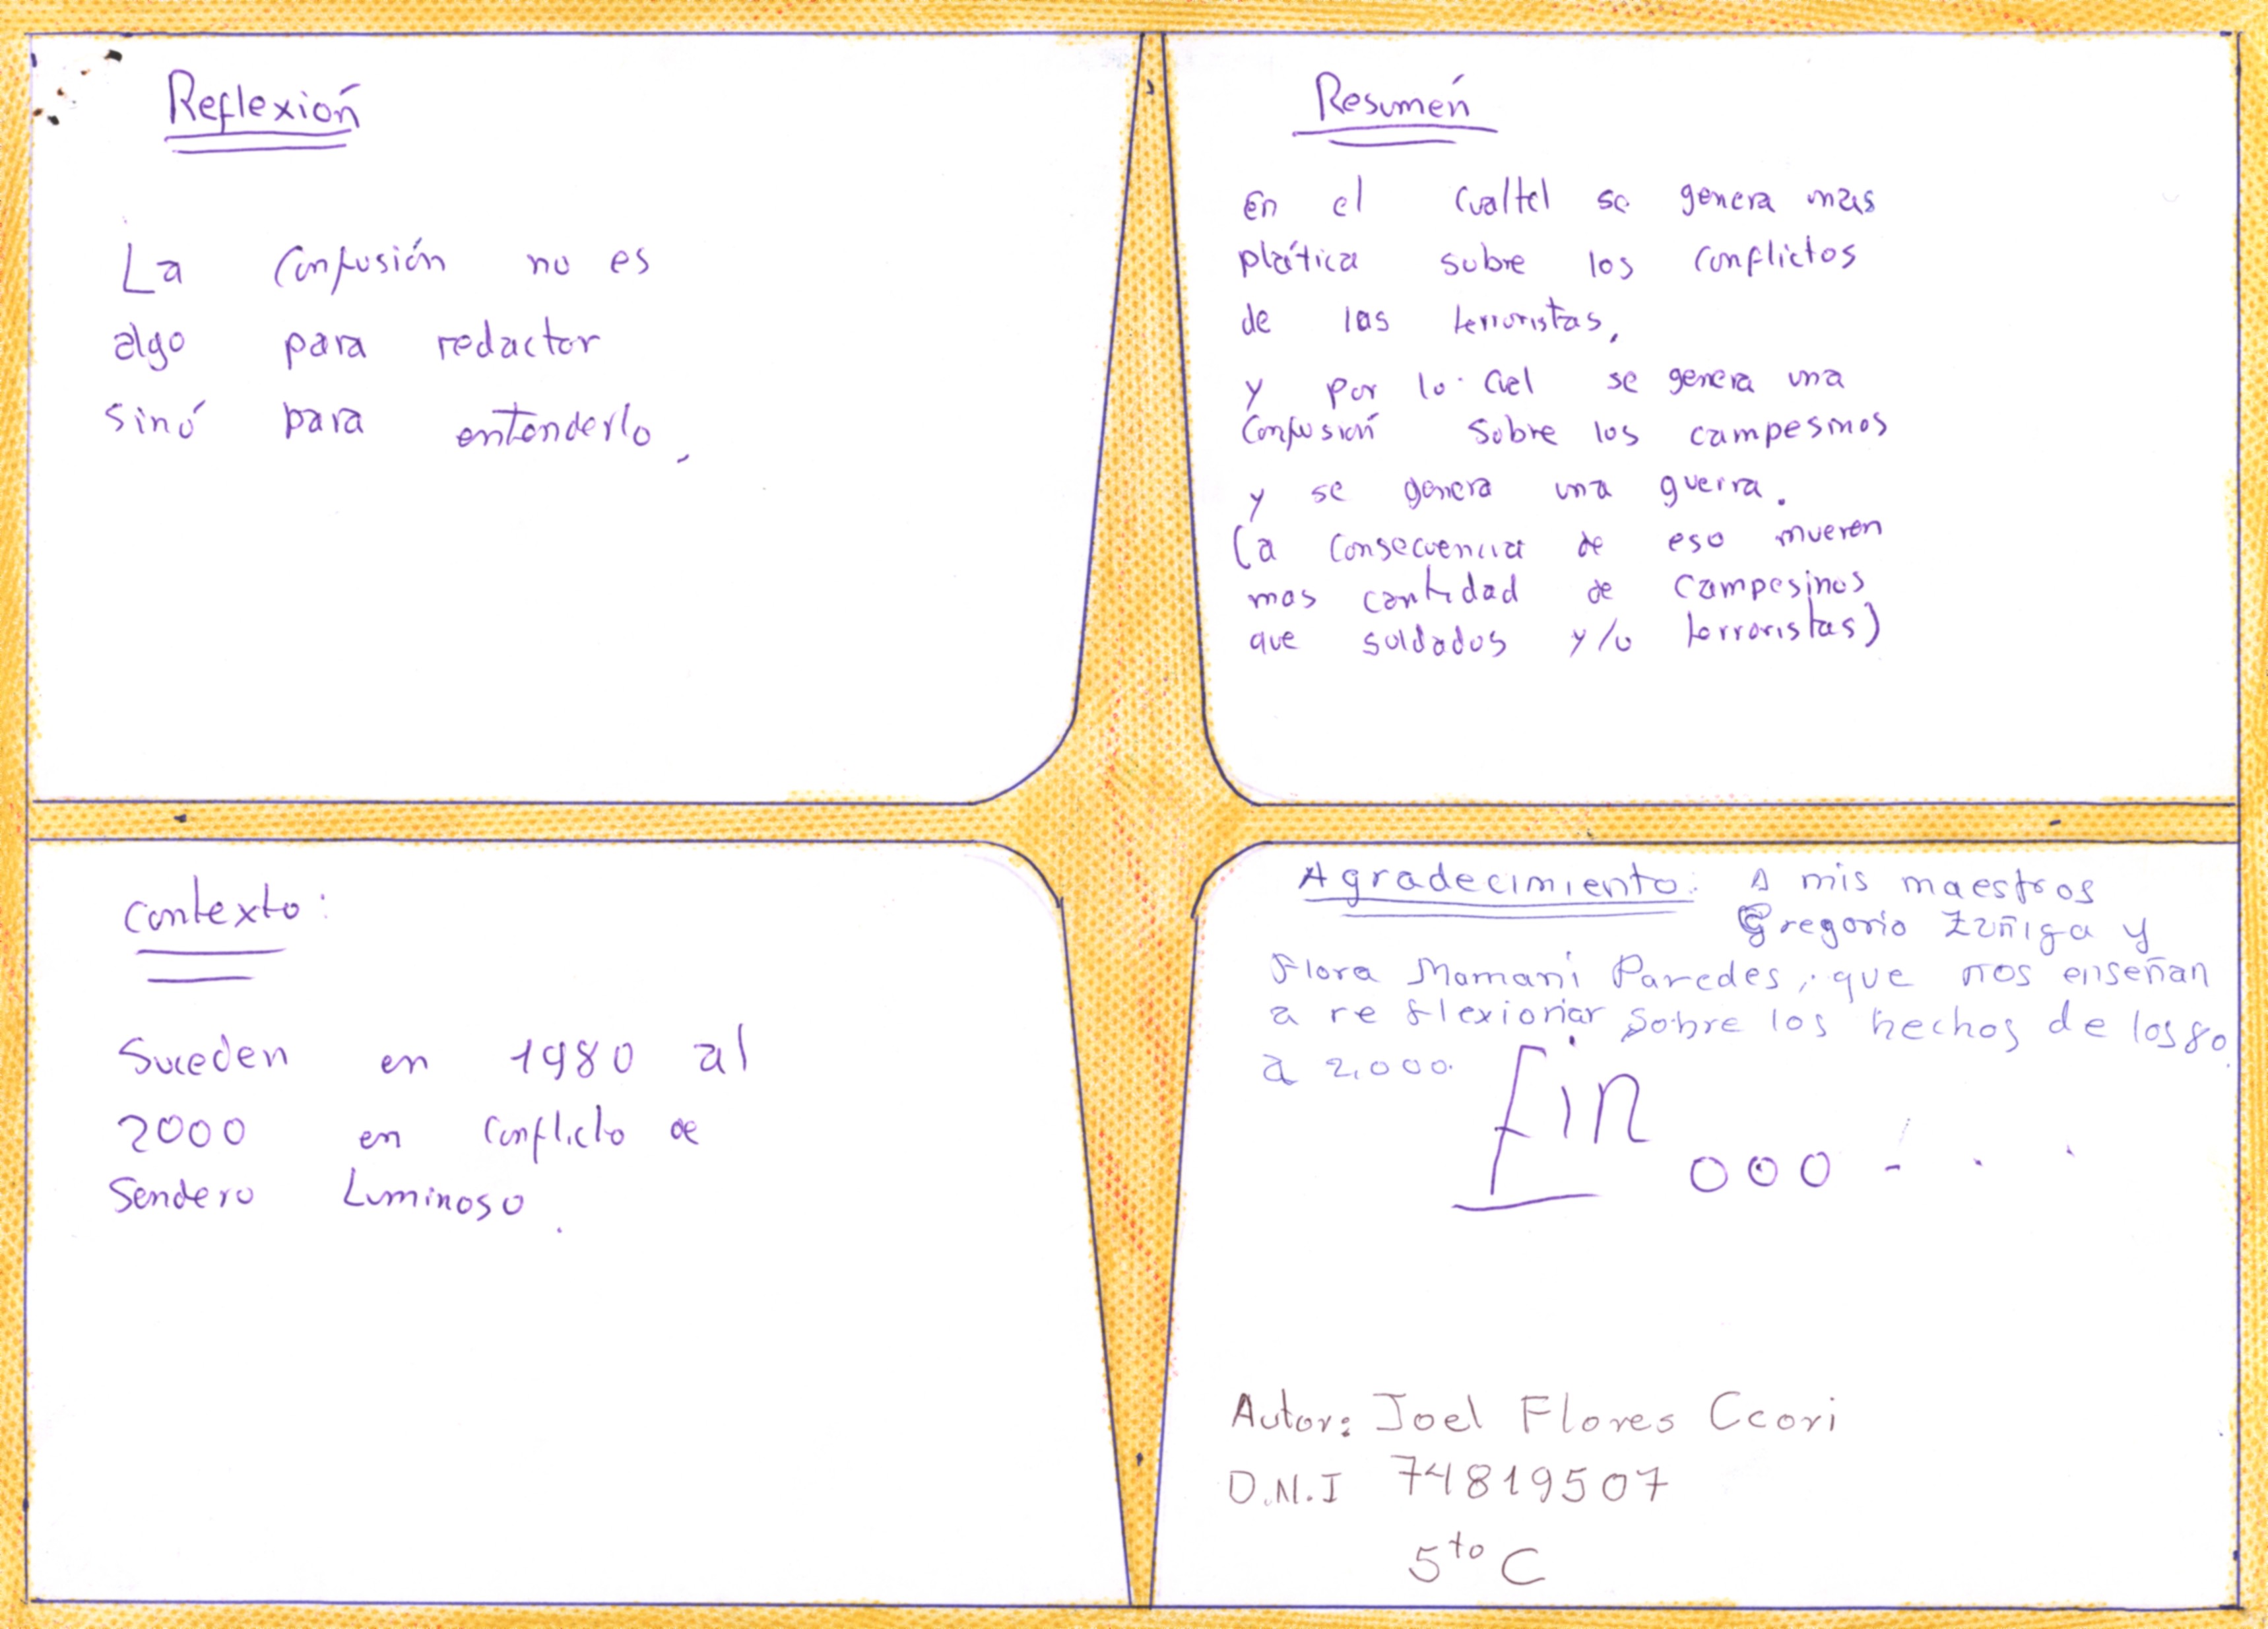 Reflexión
La confusión no es
algo para redactor
sinó para entenderlo.
Resumén
En el cualtel se genera mas
plática sobre los conflictos
de las terroristas,
y por lo cuel se genera una
confusión sobre los campesinos
y se genera una guerra.
(a consecuencia de eso mueren
mas cantidad de campesinos
que soldados y/o terroristas)
Contexto:
Suceden en 1980 al
2000 en conflicto de
Sendero Luminoso.
Agradecimiento: A mis maestros
Gregorio Zúñiga y
Flora Mamani Paredes, que nos enseñan
a reflexionar sobre los hechos de los 80
a 2,000.
Fin ooo - . .
Autor: Joel Flores Ccori
D.N.I 74819507
5to C